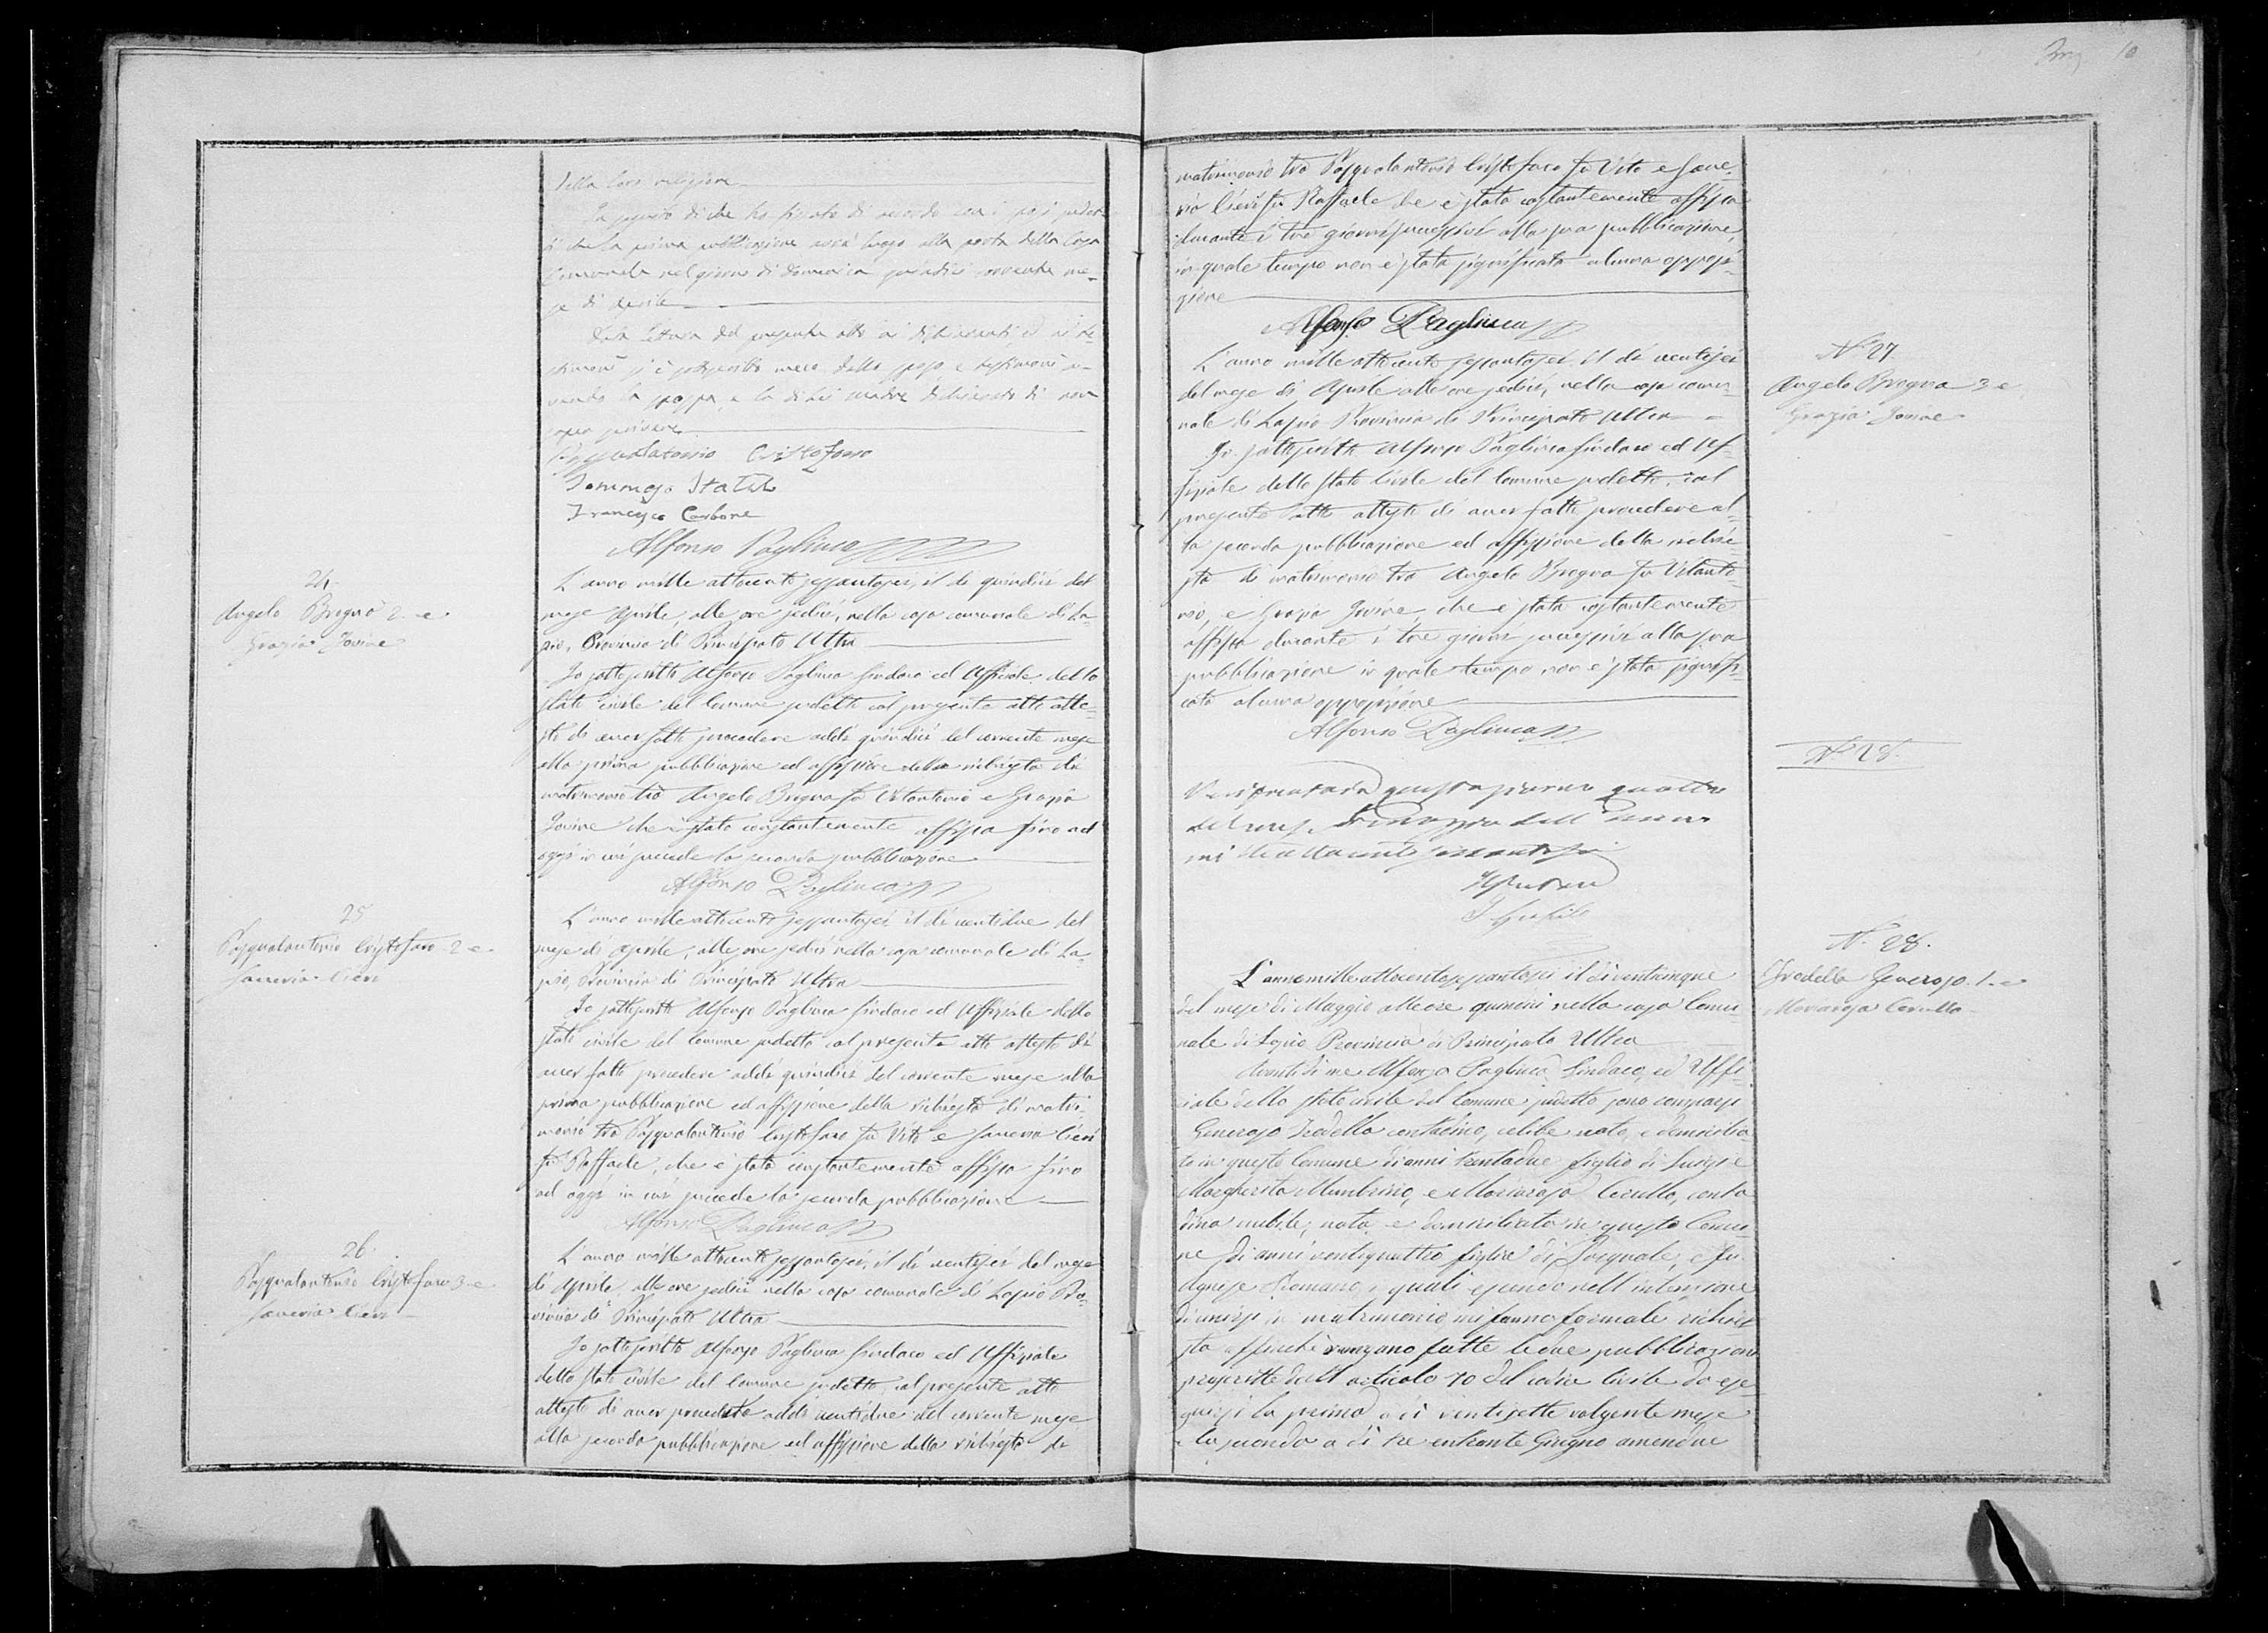 10
della loro religione
si che la prima pubblicazione avrà luogo alla porta della Casa
Comunale nel giorno di domenica quindici corrente me-
se di Aprile
Data lettura del presente atto ai richiedenti, ed ai te-
stimoni si è sottoscritto meco dallo sposo e testimoni a-
vendo la sposa, e la di lei madre dichiarato di non
saper scrivere
Pasqualantonio Cristofaro
Francesco Carbone
Alfonso Pagliuca
24.
Angelo Bregna 2. e
Grazia Iovine
L'anno mille ottocento sessantasei, il dì quindici del
mese Aprile, alle ore sedici, nella casa comunale di La-
pio, Provincia di Principato Ultra
Io sottoscritto Alfonso Pagliuca Sindaco ed Uffiziale dello
stato civile del Comune sudetto col presente atto atte-
sto di aver fatto procedere addì quindici del corrente mese
alla prima pubblicazione ed affissione della richiesta di
matrimonio tra Angelo Bregna fu Vitantonio e Grazia
Iovine che è stata constantemente affissa fino ad
oggi in cui precede la seconda pubblicazione
Alfonso Pagliuca
25
Pasqualantonio Cristofaro 2 e
Saveria Cieri
L'anno mille ottocento sessantasei il dì ventidue del
mese di Aprile, alle ore sedici nella casa comunale di La-
pio, Provincia di Principato Ultra
Io sottoscritto Alfonso Pagliuca Sindaco ed Uffiziale dello
stato civile del Comune sudetto col presente atto attesto di
aver fatto procedere addì quindici del corrente mese alla
prima pubblicazione ed affissione della richiesta di matri-
monio tra Pasqualantonio Cristofaro fu Vito e Saveria Cieri
fu Raffaele, che è stata constantemente affissa fino
ad oggi in cui precede la seconda pubblicazione
Alfonso Pagliuca
26.
Pasqualantonio Cristofaro 3 e
Saveria Cieri
L'anno mille ottocento sessantasei, il dì ventisei del mese
di Aprile, alle ore sedici nella casa comunale di Lapio Pro-
vincia di Principato Ultra
Io sottoscritto Alfonso Pagliuca Sindaco ed Uffiziale
dello stato civile del Comune sudetto, col presente atto
attesto di aver proceduto addì ventidue del corrente mese
alla seconda pubblicazione ed affissione della richiesta di
matrimonio tra Pasqualantonio Cristofaro fu Vito e Save-
ria Cieri fu Raffaele che è stata constantemente affissa
durante i tre giorni successivi alla sua pubblicazione,
in quale tempo non è stata significata alcuna opposi-
zione
Alfonso Pagliuca
N.° 27.
Angelo Bregna 3 e
Grazia Iovine
L'anno mille ottocento sessantasei il dì ventisei
del mese di Aprile alle ore sedici, nella casa comu-
nale di Lapio Provincia di Principato Ultra
Io sottoscritto Alfonso Pagliuca Sindaco ed Uf-
fiziale dello stato civile del Comune sudetto, col
presente atto attesto di aver fatto procedere al-
la seconda pubblicazione ed affissione della richie-
sta di matrimonio tra Angelo Bregna fu Vitanto-
nio, e Grazia Iovine, che è stata constantemente
affissa durante i tre giorni successivi alla sua
pubblicazione in quale tempo non è stata signifi-
cata alcuna opposizione
Alfonso Pagliuca
N.° 28.
quattro
N. 28.
Iredella Generoso. 1. e
Mariarosa Cerullo
L'anno mille ottocentosessantasei il dì venticinque
del mese di Maggio alle ore quindici nella casa Comu-
nale di Lapio Provincia di Principato Ultra
Avanti di me Alfonso Pagliuca Sindaco, ed Uffi-
ziale dello stato civile del Comune sudetto sono comparsi
Generoso Iredella contadino, celibe nato, e domicilia-
to in questo Comune di anni trentadue figlio di Luigi e
Margherita Mambrino, e Mariarosa Cerullo, conta-
dina nubile, nata e domiciliata in questo Comu-
ne di anni ventiquattro figlia di Pasquale, e fu
Agnese Romano, i quali essendo nell'intenzione
di unirsi in matrimonio mi fanno formale richie-
sta affinchè vengano fatte le due pubblicazioni
prescritte dall'articolo 70 del codice Civile da ese-
guirsi la prima a dì ventisette volgente mese
e la seconda a dì tre entrante Giugno amendue